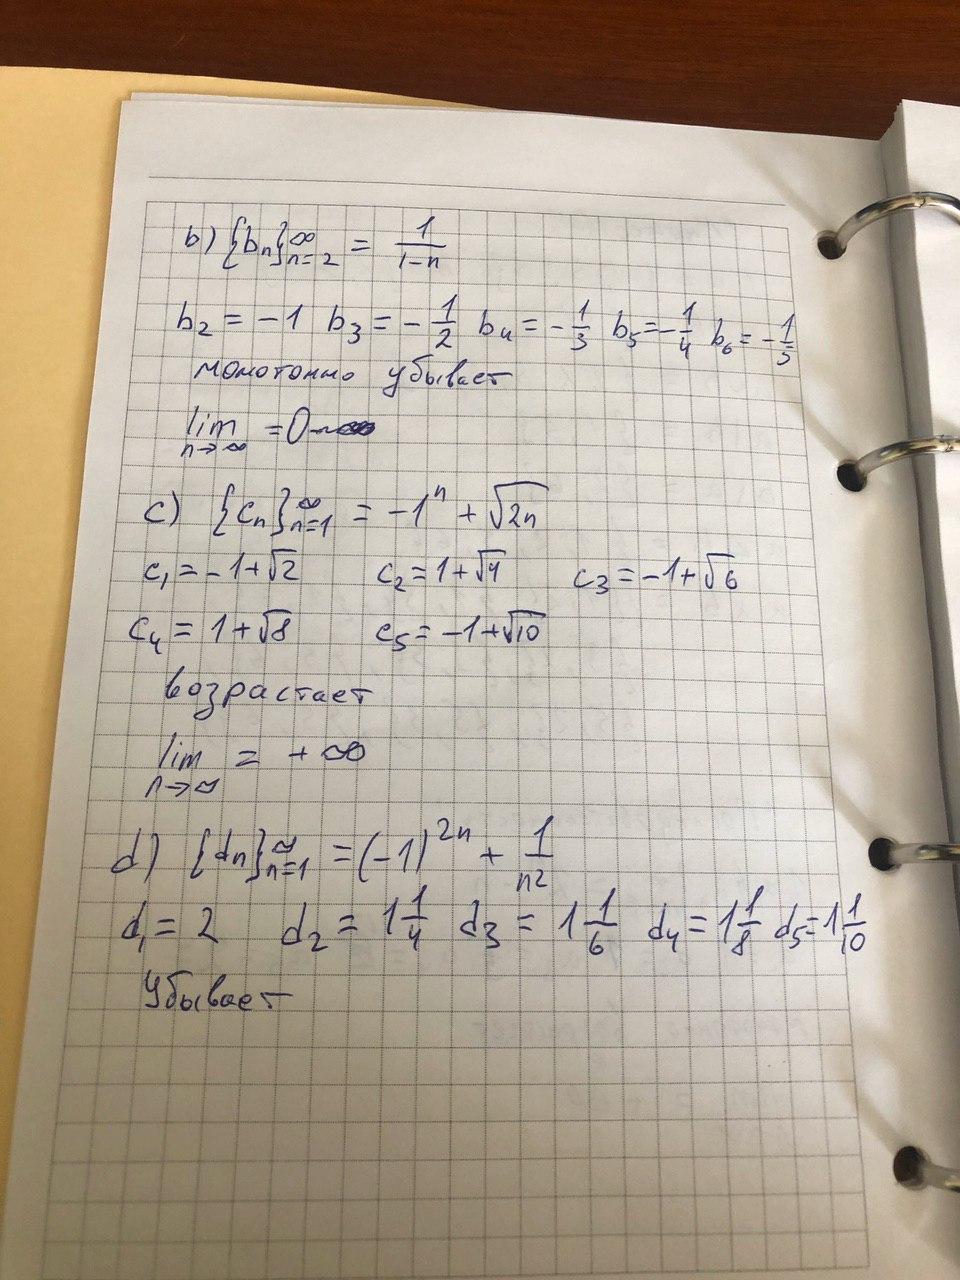 b) {bₙ}ₙ₌₂^∞ = 1/(1-n)
b₂ = -1 b₃ = -1/2 b₄ = -1/3 b₅ = -1/4 b₆ = -1/5
монотонно убывает
lim n→∞ = 0
c) {cₙ}ₙ₌₁^∞ = -1ⁿ + √2n
c₁ = -1+√2 c₂ = 1+√4 c₃ = -1+√6
c₄ = 1+√8 c₅ = -1+√10
возрастает
lim n→∞ = +∞
d) {dₙ}ₙ₌₁^∞ = (-1)²ⁿ + 1/n²
d₁ = 2 d₂ = 1 1/4 d₃ = 1 1/6 d₄ = 1 1/8 d₅ = 1 1/10
Убывает